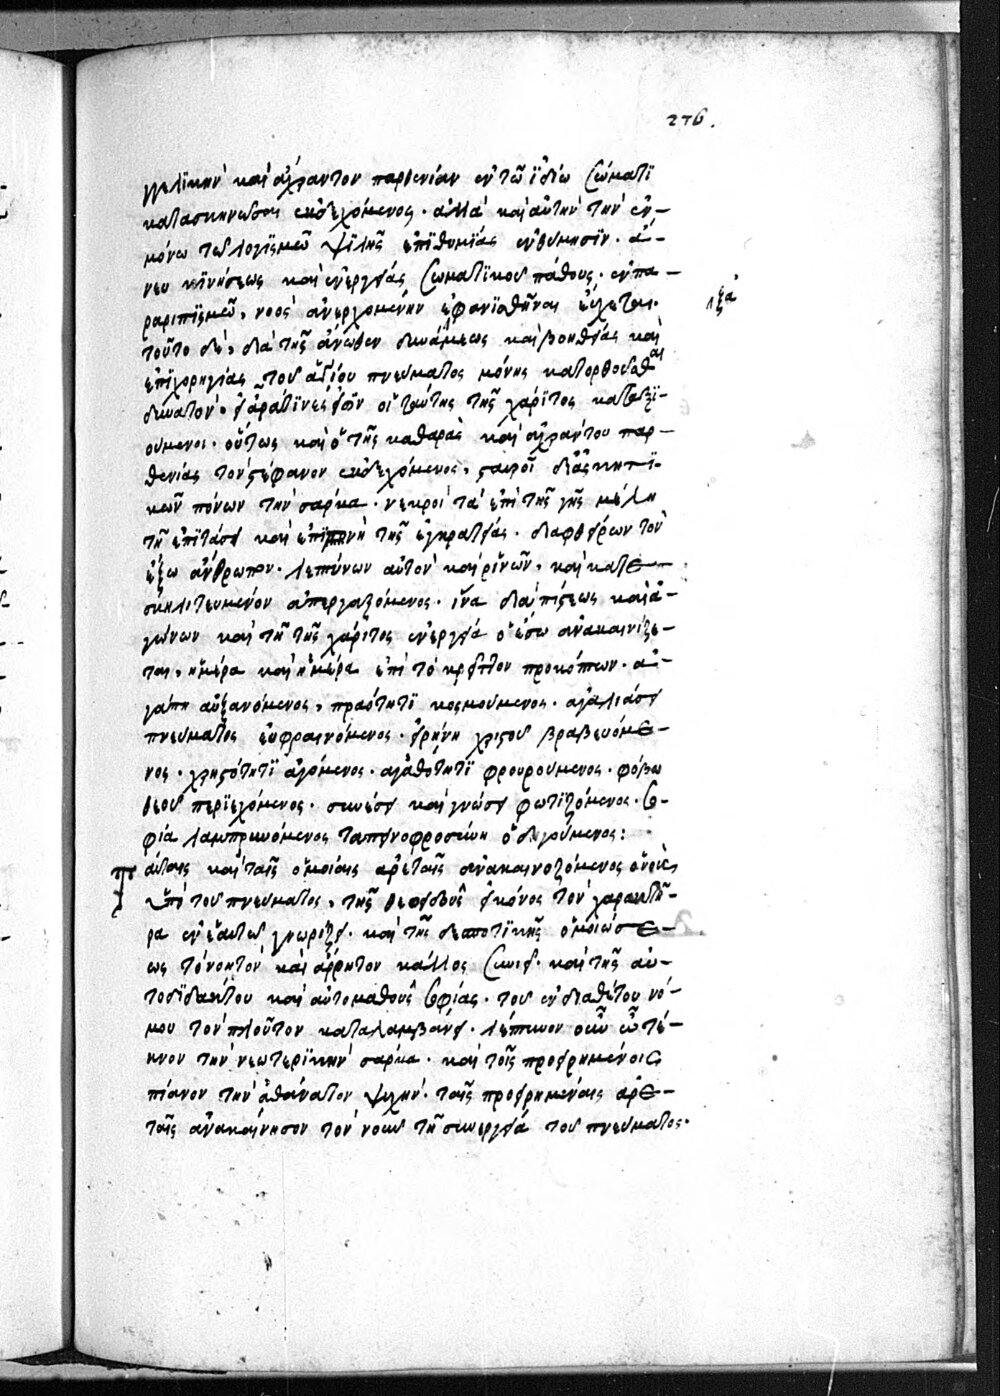 276.
γγελϊκὴν καὶ ἄχραντον παρθενίαν ἐν τῶ ϊδίω σώματϊ
κατασκηνῶσαι ἐκδεχόμενος. ἀλλὰ καὶ αὐτὴν τὴν ἐν
μόνω τῶ λογϊσμῶ ψϊλῆς ἐπϊθυμΐας ἐνθύμησϊν. ἄ-
νευ κϊνήσεως καὶ ἐνεργείας σωματϊκοῦ πάθους. ἐν πα-
ραριπϊσμῶ, νοὸς ἀνερχομένην ἀφανϊσθῆναι εὔχεται.
τοῦτο δὲ, διὰ τῆς ἄνωθεν δυνάμεως καὶ βοηθείας καὶ
ἐπϊχορηγίας τοῦ ἁγίου πνεύματος μόνης κατορθοῦσθαι
δυνατὸν. εἰ ἄρα τϊνές εἰσϊν οἱ ταύτης τῆς χάρϊτος καταξϊ-
ούμενοι. οὕτως καὶ ὁ τῆς καθαρᾶς καὶ ἀχράντου παρ-
θενίας τὸν στέφανον ἐκδεχόμενος, σταυροῖ δι' ἀσκητϊ-
κῶν πόνων τὴν σάρκα. νεκροῖ τὰ ἐπὶ τῆς γῆς μέλη
τῆ ἐπϊτάσει καὶ ἐπϊμονῆ τῆς ἐγκρατείας. διαφθείρων τὸν
ἔξω ἄνθρωπον. λεπτύνων αὐτὸν καὶ ρϊνῶν, καὶ κατε-
σκελετευμένον ἀπεργαζόμενος. ἵνα διὰ πίστεως καὶ ἀ-
γώνων καὶ τῆ τῆς χάρϊτος ἐνεργεία ὁ ἔσω ἀνακαινίζε-
ται, ἡμέρα καὶ ἡμέρα ἐπὶ τὸ κρεῖττον προκόπτων. ἀ-
γάπη αὐξανόμενος, πραότητϊ κοσμούμενος. ἀγαλιάσει
πνεύματος εὐφραινόμενος. εἰρήνη χριστοῦ βραβευόμε-
νος. χρηστότητϊ ἀγόμενος. ἀγαθότητϊ φρουρούμενος. φόβω
θεοῦ περϊεχόμενος. συνέσει καὶ γνώσει φωτϊζόμενος. σο-
φία λαμπρυνόμενος ταπεινοφροσύνη ὁδηγούμενος:
αὐταῖς καὶ ταῖς ὁμοίαις ἀρεταῖς ἀνακαινοζόμενος ὁ νοῦς
ὑπὸ τοῦ πνεύματος, τῆς θεοειδοῦς εἰκόνος τὸν χαρακτῆ-
ρα ἐν ἑαυτῶ γνωρίζει. καὶ τῆς δεσποτϊκῆς ὁμοιώσε-
ως τὸ νοητὸν καὶ ἄρρητον κάλλος σκοπεῖ. καὶ τῆς αὐ-
τοδϊδάκτου καὶ αὐτομαθοῦς σοφίας. τοῦ ἐνδιαθέτου νό-
μου τὸν πλοῦτον καταλαμβάνει. λέπτυνον οὖν ὦ τέ-
κνον τὴν νεωτερϊκὴν σάρκα. καὶ τοῖς προειρημένοις
πίανον τὴν ἀθάνατον ψυχὴν. ταῖς προειρημέναις ἀρε-
ταῖς ἀνακαίνησον τὸν νοῦν τῆ συνεργεία τοῦ πνεύματος.